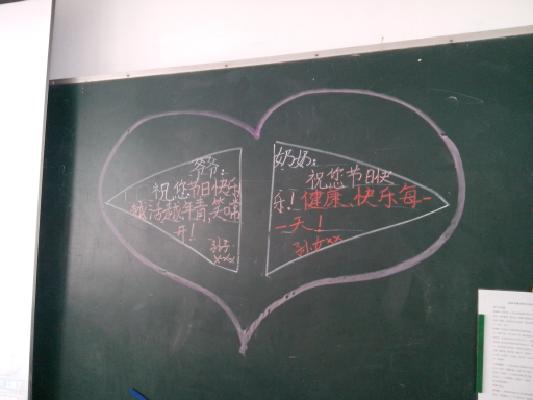 爷爷:
祝您节日快乐!
越活越年青,笑常
开!
孙子
xxx
奶奶:
祝您节日快
乐!健康、快乐每一
天!
孙女xx